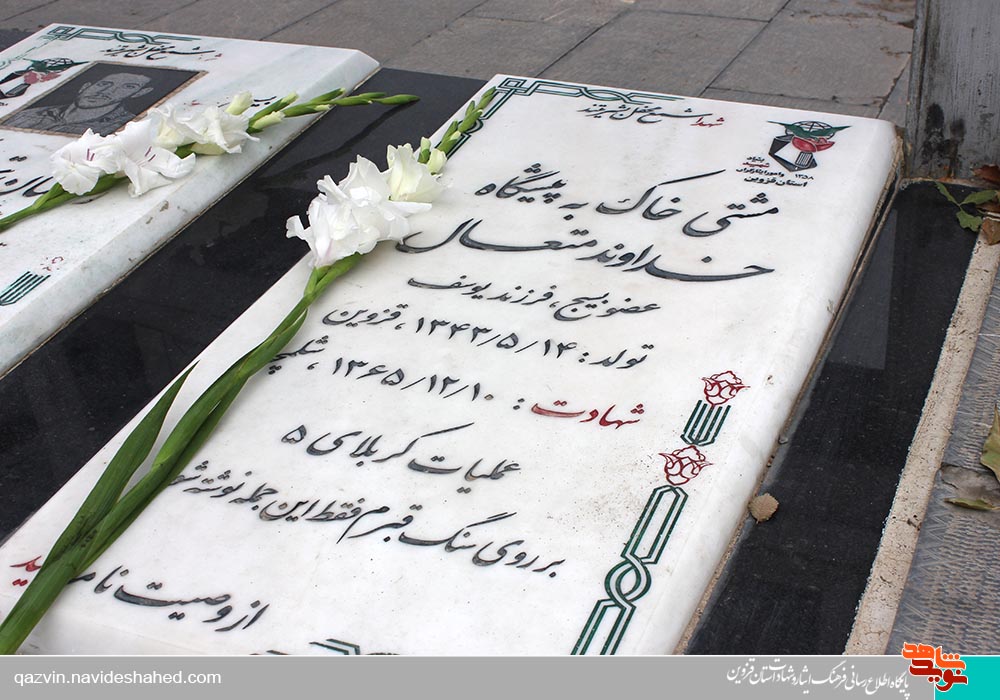 شهدا شمع محفل بشریتند
بنیاد
شهید
و امور ایثارگران
استان قزوین
۱۳۵۸
مشتی خاک به پیشگاه
خداوند متعال
عضو بسیج ، فرزند یوسف
تولد : ۱۳۴۳/۵/۱۴ ، قزوین
شهادت : ۱۳۶۵/۱۲/۱۰ ،
عملیات کربلای ۵
بر روی سنگ قبرم فقط این جمله نوشته
از وصیت نامه
شمع محفل بشریتند
qazvin.navideshahed.com
پایگاه اطلاع رسانی فرهنگ ایثار و شهادت استان قزوین
نوید شاهد